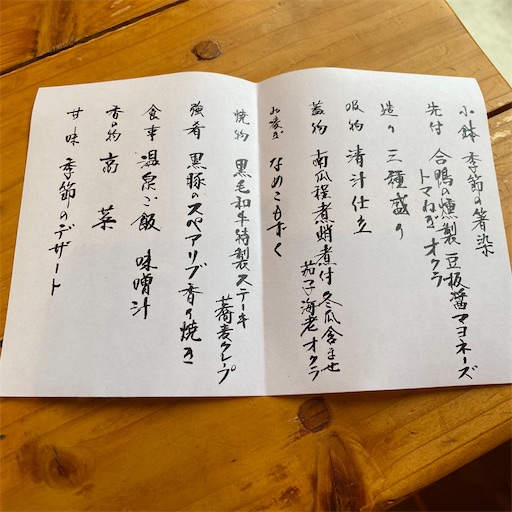 小鉢 季節の箸染
先付 合鴨の燻製 豆板醤マヨネーズ
トマト ねぎ オクラ
造り 三種盛り
吸物 清汁仕立
蓋物 南瓜程煮 蛸煮付 冬瓜含ませ
茄子 海老 オクラ
なめこもずく
焼物 黒毛和牛特製ステーキ
蕎麦クレープ
強肴 黒豚のスペアリブ香り焼き
食事 温泉ご飯 味噌汁
香の物 高菜
甘味 季節のデザート